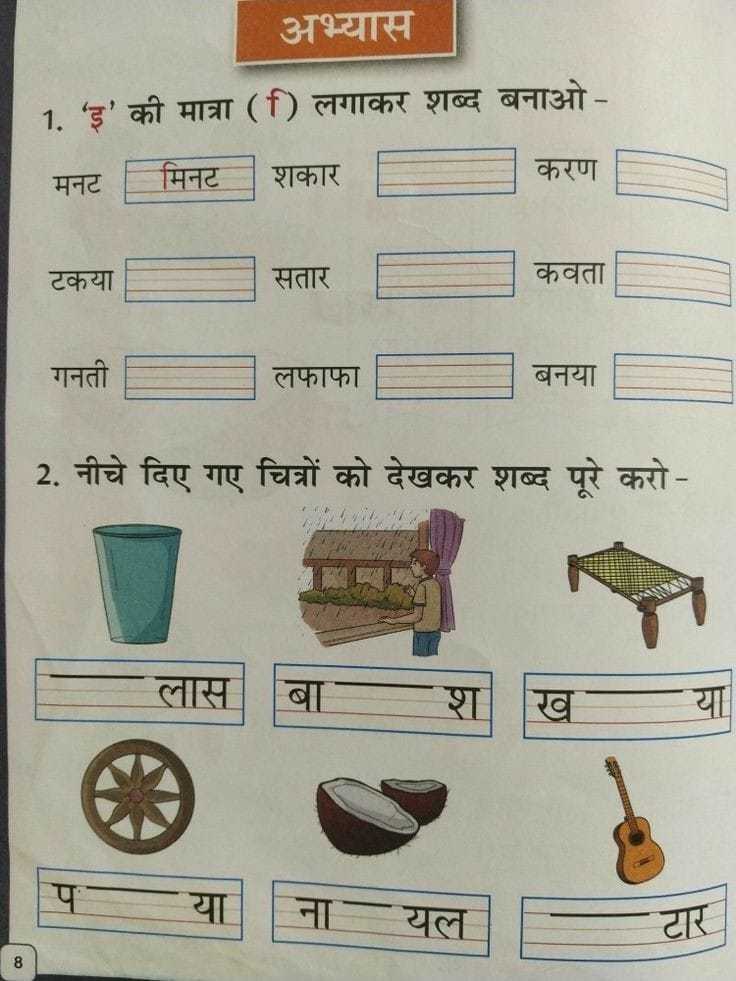 अभ्यास
1. ‘इ’ की मात्रा ( ि) लगाकर शब्द बनाओ –
मनट मिनट शकार करण
टकया सतार कवता
गनती लफाफा बनया
2. नीचे दिए गए चित्रों को देखकर शब्द पूरे करो –
____ लास बा ____ श ख ____ या
प ____ या ना ____ यल ____ टार
8